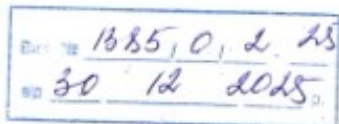 Вих № 1385, 0, 2. 25
від 30 12 2025 р.